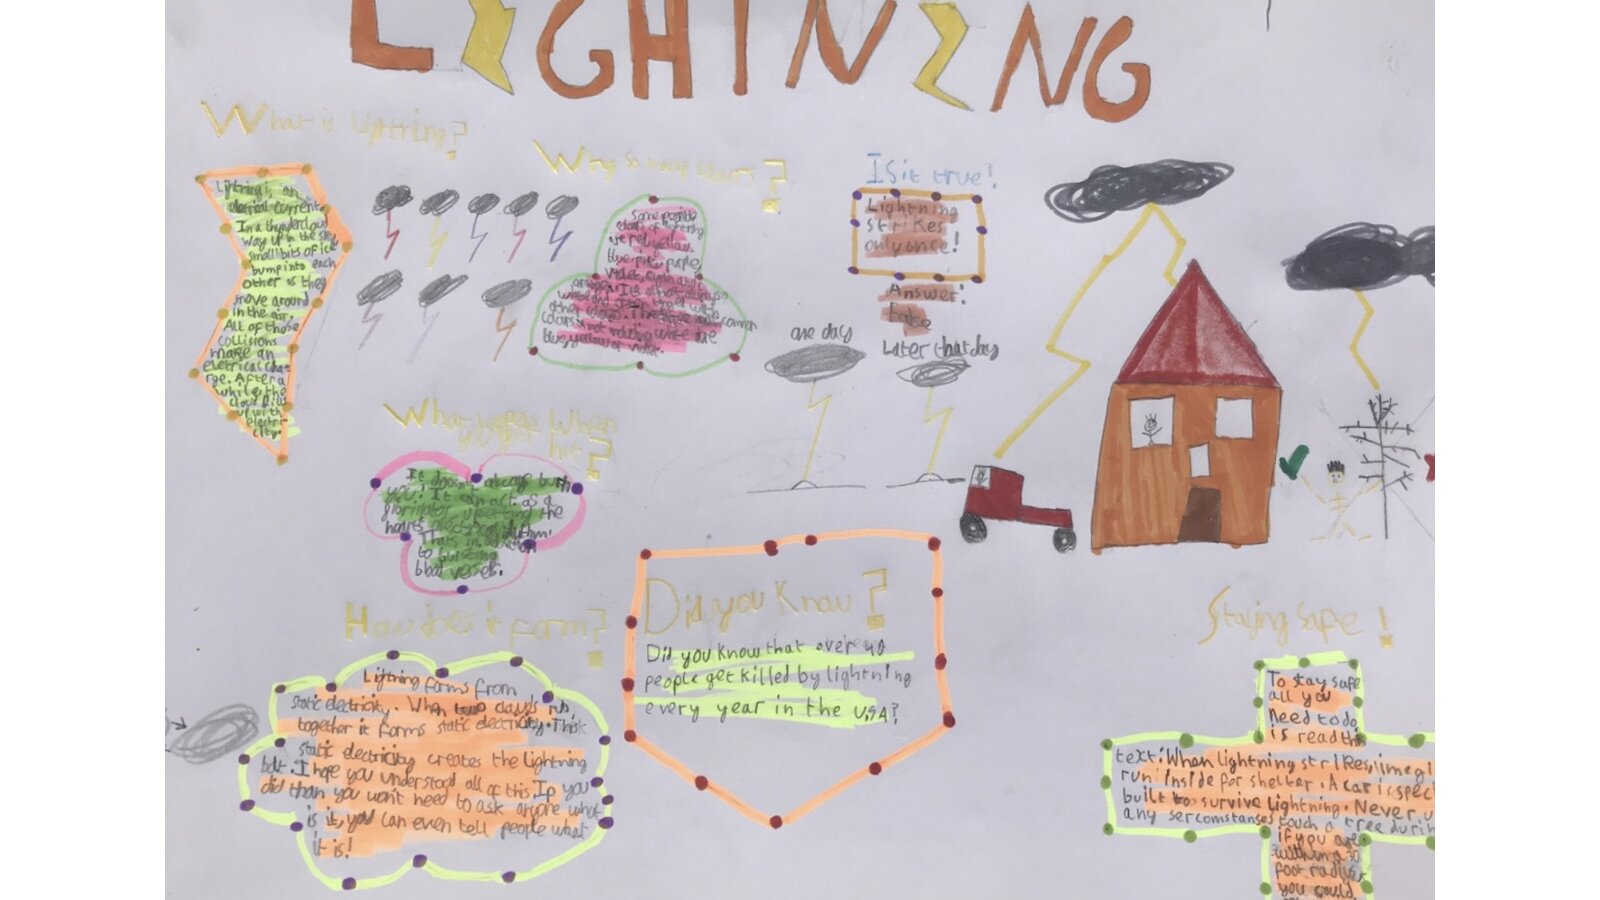 LIGHTNING
What is Lightning?
Lightning is an
eletrical current.
In a thundercloud
way up in the sky
small bits of ice
bump into each
other as they
move around
in the air.
All of those
collisions
make an
eletrical cha-
rge. After a
while the
cloud fills
up with
electri-
city.
Why so many colours?
Some possible
colours of lightning
is red, yellow
blue, pink, purple,
violet,
orange. It's
other colours. The
common
colours not including white are
blue, yellow or violet.
Is it true!
Lightning
strikes
only once!
Answer!
False
one day
Later that day
What happens When
you get hit?
It doesn't always burn
you! It can act as a
upsetting the
hearts electrical rhythm.
Thats in addition
to pulsating
blood vessels.
How does it form?
Lightning forms from
static electricity. When two clouds rub
together it forms static electricity. This
static electricity creates the lightning
bolt. I hope you understood all of this. If you
did than you won't need to ask anyone what
is it, you can even tell people what
it is!
Did you Know?
Did you know that over 40
people get killed by lightning
every year in the USA?
Staying Safe!
To stay safe
all you
need to do
is read this
text: When lightning strikes,
run inside for shelter. A car is spec
built to survive lightning. Never u
any sercomstanses touch a tree durin
if you are
within a 10
foot radius
you could